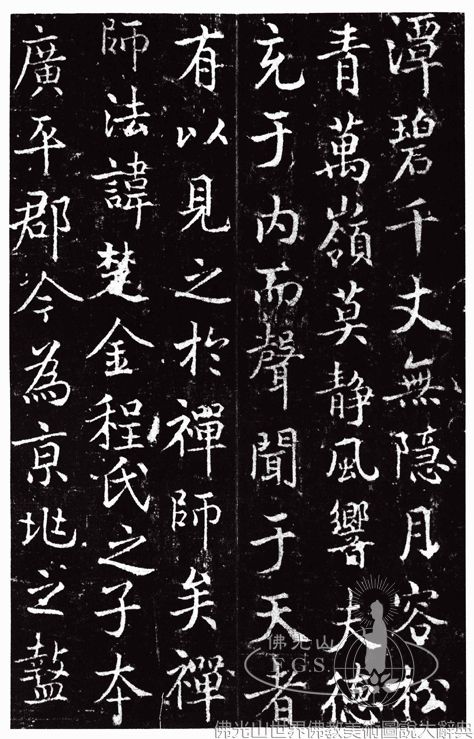 潭碧千丈無隱月容松
青萬嶺莫静風響夫德
充于内而聲聞于天者
有以見之於禪師矣禪
師法諱楚金程氏之子本
廣平郡今為京地之盩
佛光山
FGS
佛光山世界佛教美術圖說大辭典